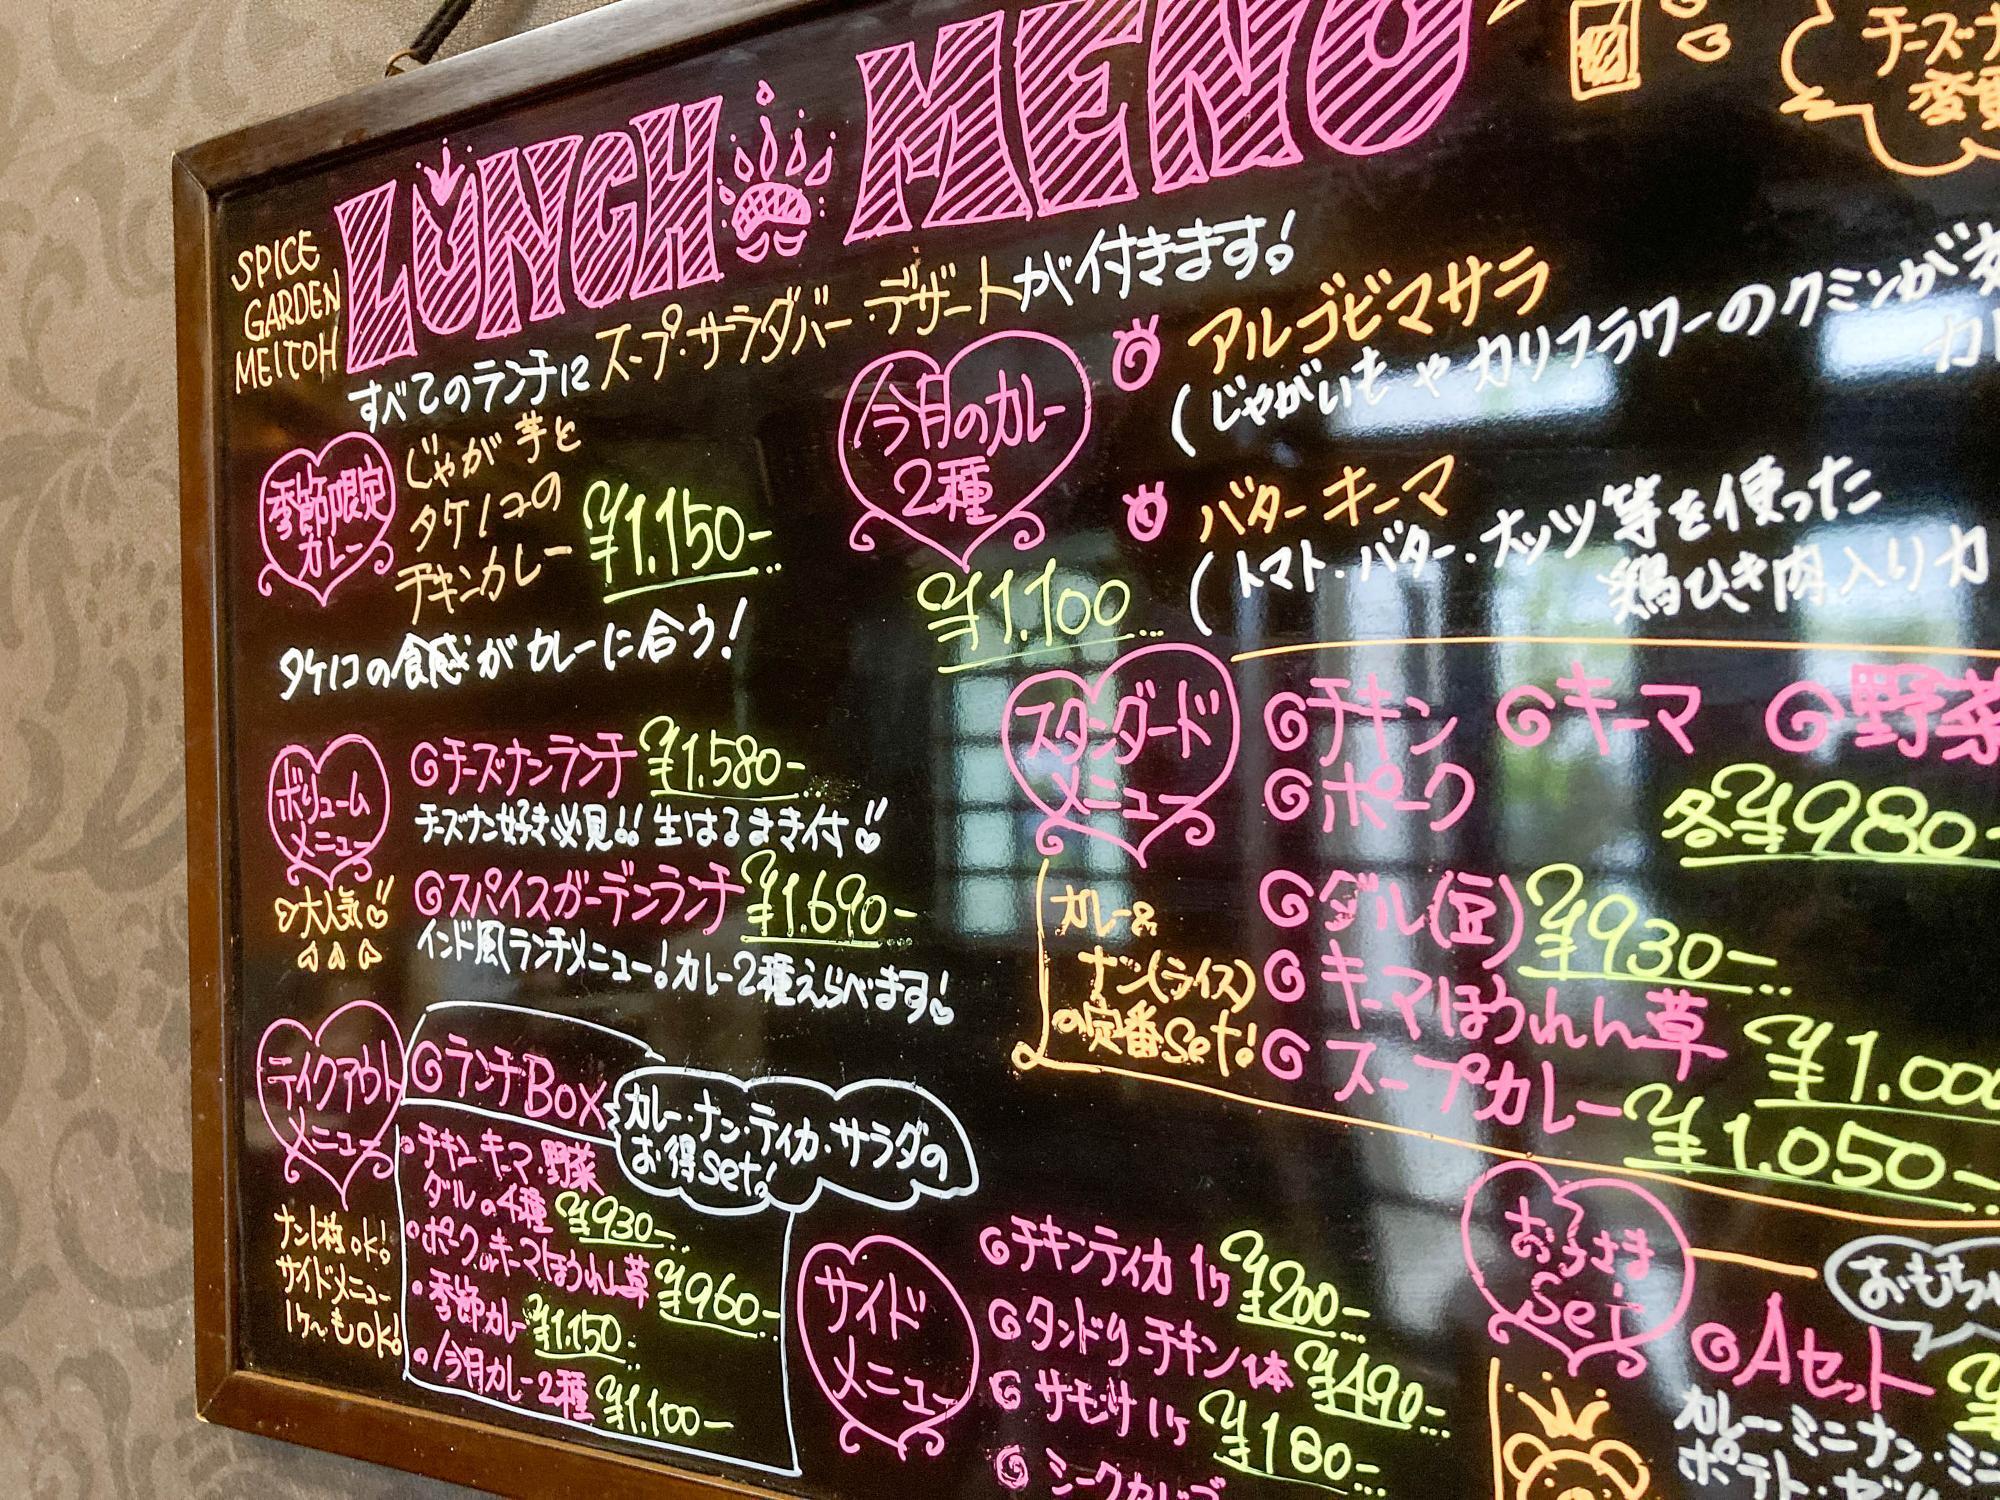 LUNCH MENU
SPICE
GARDEN
MEITOH
チーズナ
変更
すべてのランチに スープ・サラダバー・デザートが付きます!
季節限定
カレー
じゃが芋と
タケノコの
チキンカレー
¥1.150-
タケノコの食感がカレーに合う!
今月のカレー
2種
¥1.100
アルゴビマサラ
(じゃがいもやカリフラワーのクミンが
カレ
バターキーマ
(トマト・バター・ナッツ等を使った
鶏ひき肉入りカ
ボリューム
メニュー
大人気
チーズナンランチ ¥1.580-
チーズナン好き必見!! 生はるまき付
スパイスガーデンランチ ¥1.690-
インド風ランチメニュー!カレー2種えらべます!
スタンダード
メニュー
チキン キーマ 野菜
ポーク 各¥980-
ダル(豆) ¥930-
キーマほうれん草 ¥1.000
スープカレー ¥1.050-
カレー&
ナン(ライス)
の定番Set!
テイクアウト
メニュー
ナン1枚OK!
サイドメニュー
1ヶ~もOK!
ランチBOX
カレー・ナン・ティカ・サラダの
お得Set!
・チキン・キーマ・野菜
ダルの4種 ¥930-
・ポークorキーマほうれん草 ¥960-
・季節カレー ¥1.150
・今月カレー2種 ¥1.100-
サイド
メニュー
チキンティカ 1ヶ ¥200-
タンドリーチキン1本 ¥490
サモサ1ヶ ¥180-
シークカバブ
おこさま
Set
おもちゃ
Aセット
カレーミニナン・ミニ
ポテト・ゼリ